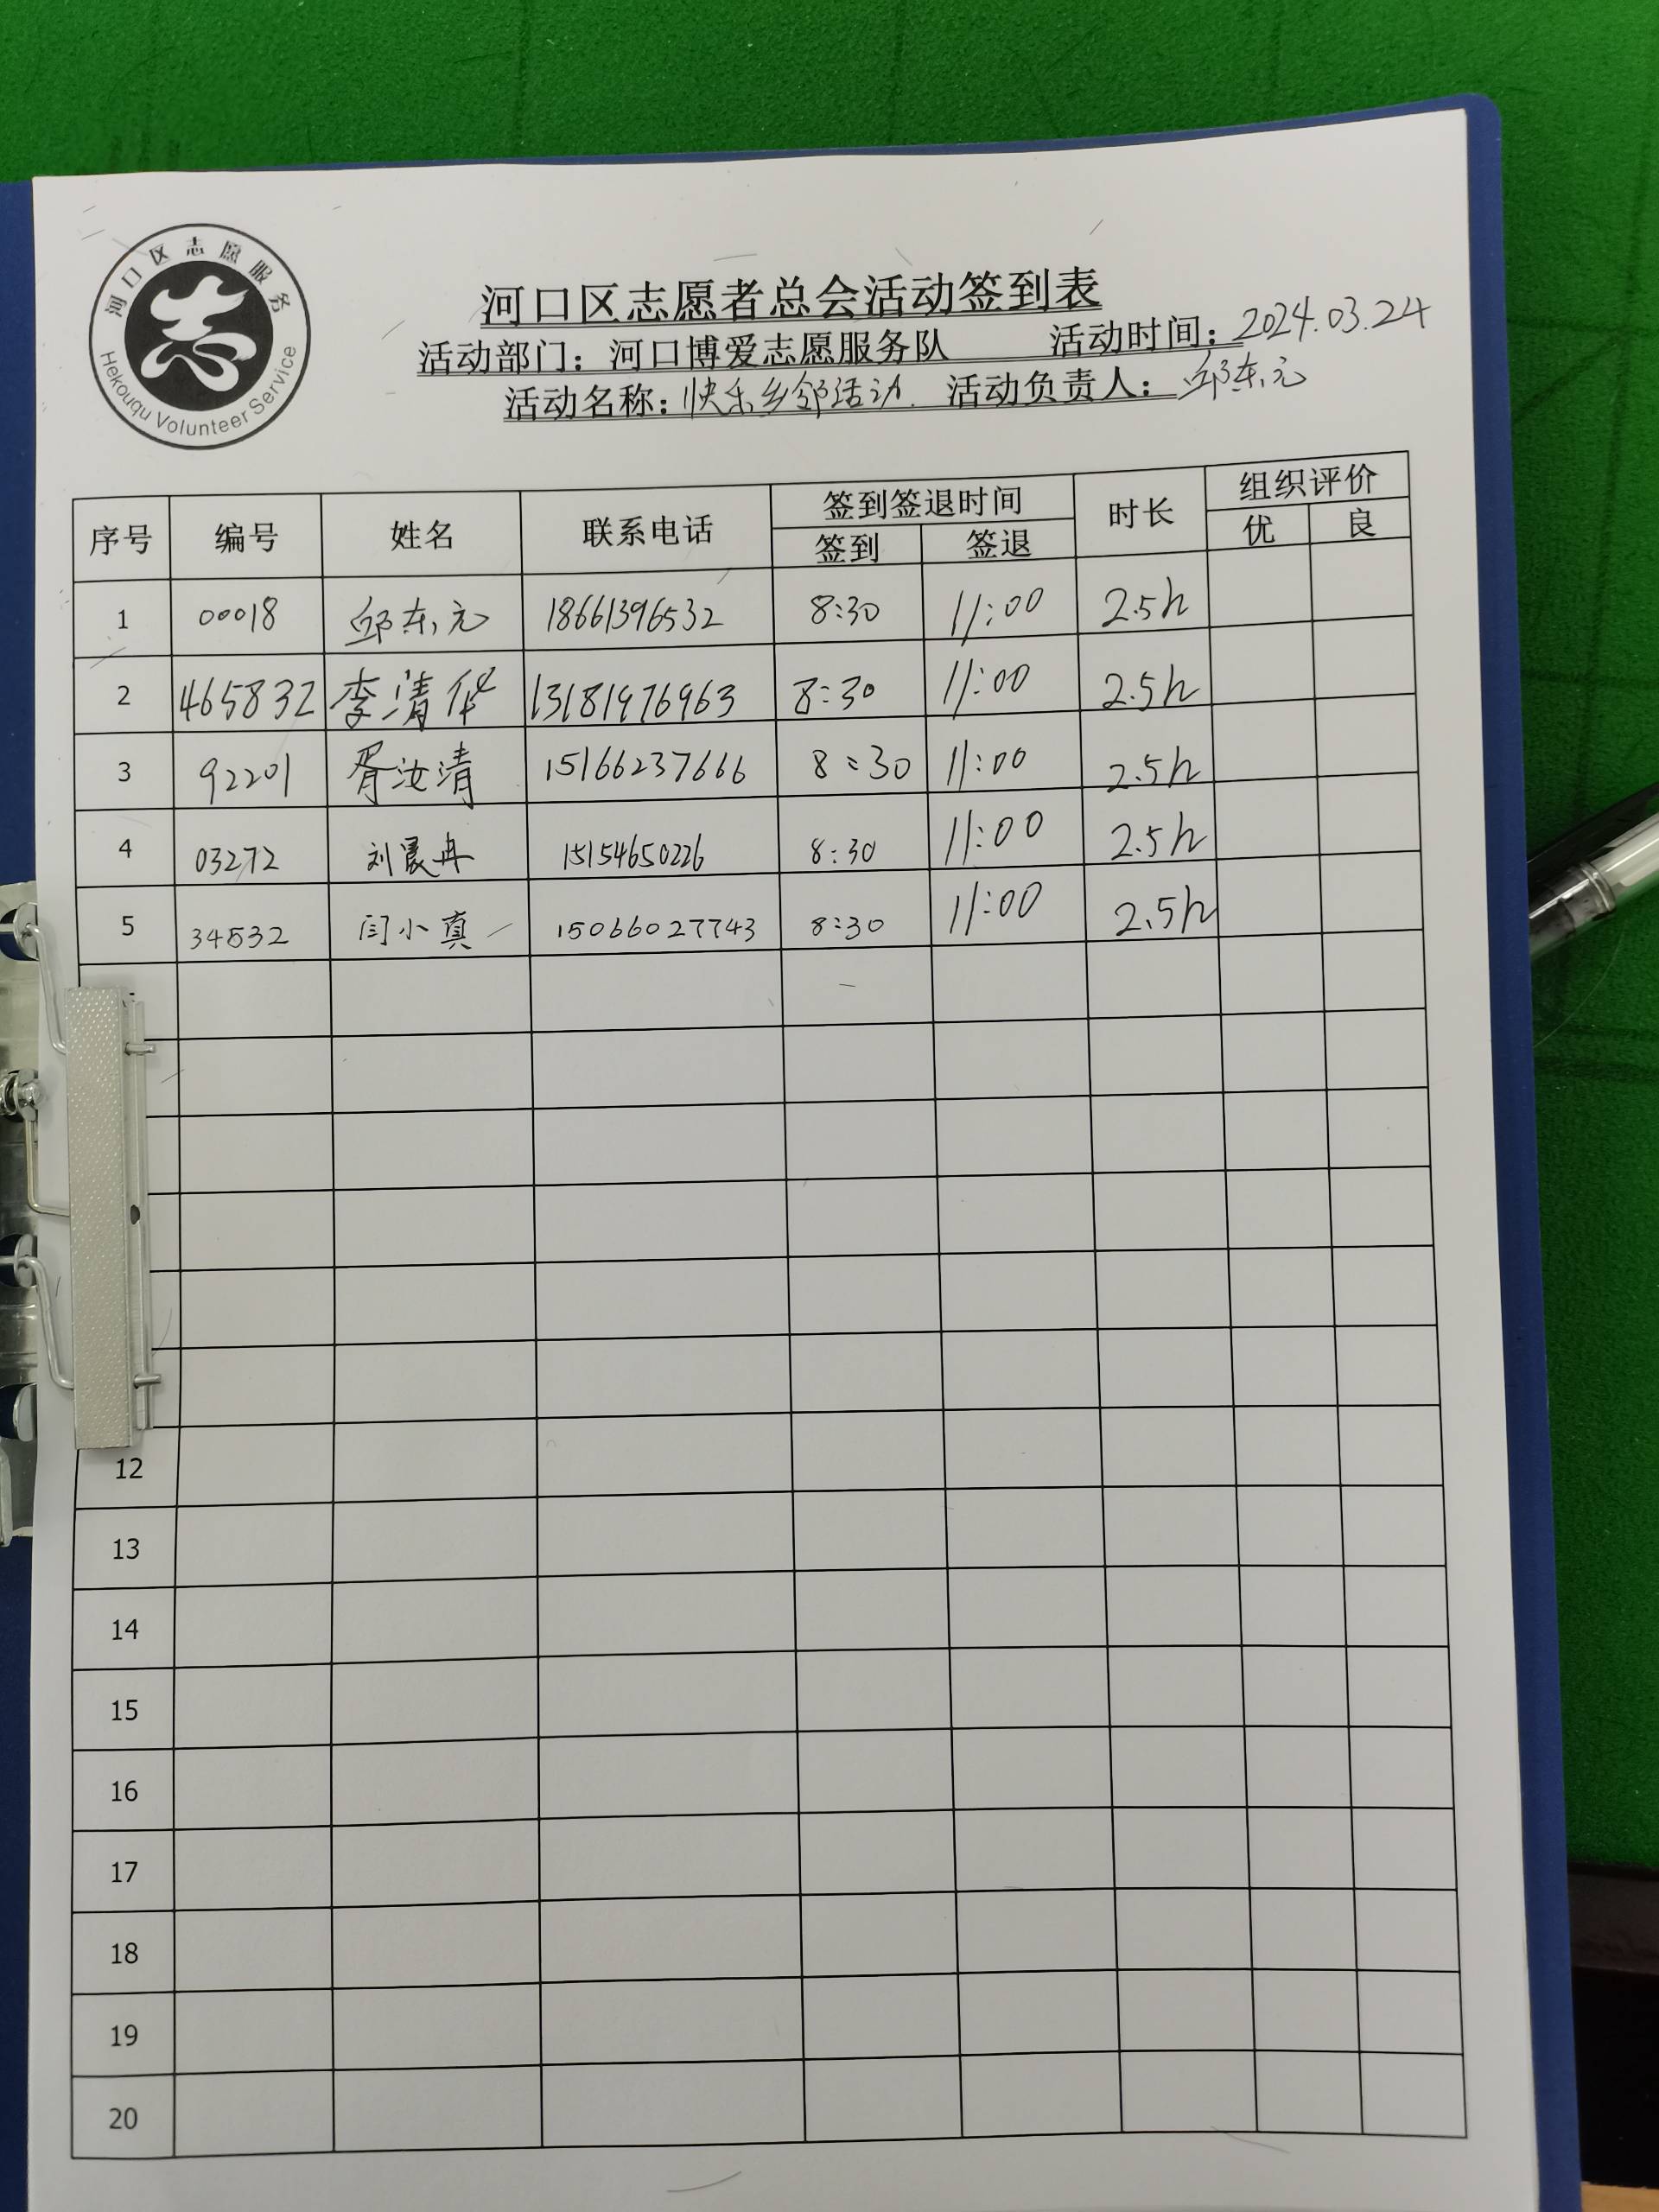 河口区志愿服务
Hekouqu Volunteer Service
河口区志愿者总会活动签到表
活动部门：河口博爱志愿服务队 活动时间：2024.03.24
活动名称：快乐乡邻活动. 活动负责人：邱东元
序号 编号 姓名 联系电话 签到签退时间 时长 组织评价
签到 签退 优 良
1 00018 邱东元 18661396532 8:30 11:00 2.5h
2 465832 李清华 13181976963 8:30 11:00 2.5h
3 92201 胥汝清 15166237666 8:30 11:00 2.5h
4 03272 刘晨冉 15154650226 8:30 11:00 2.5h
5 34532 闫小真 15066027743 8:30 11:00 2.5h
12
13
14
15
16
17
18
19
20